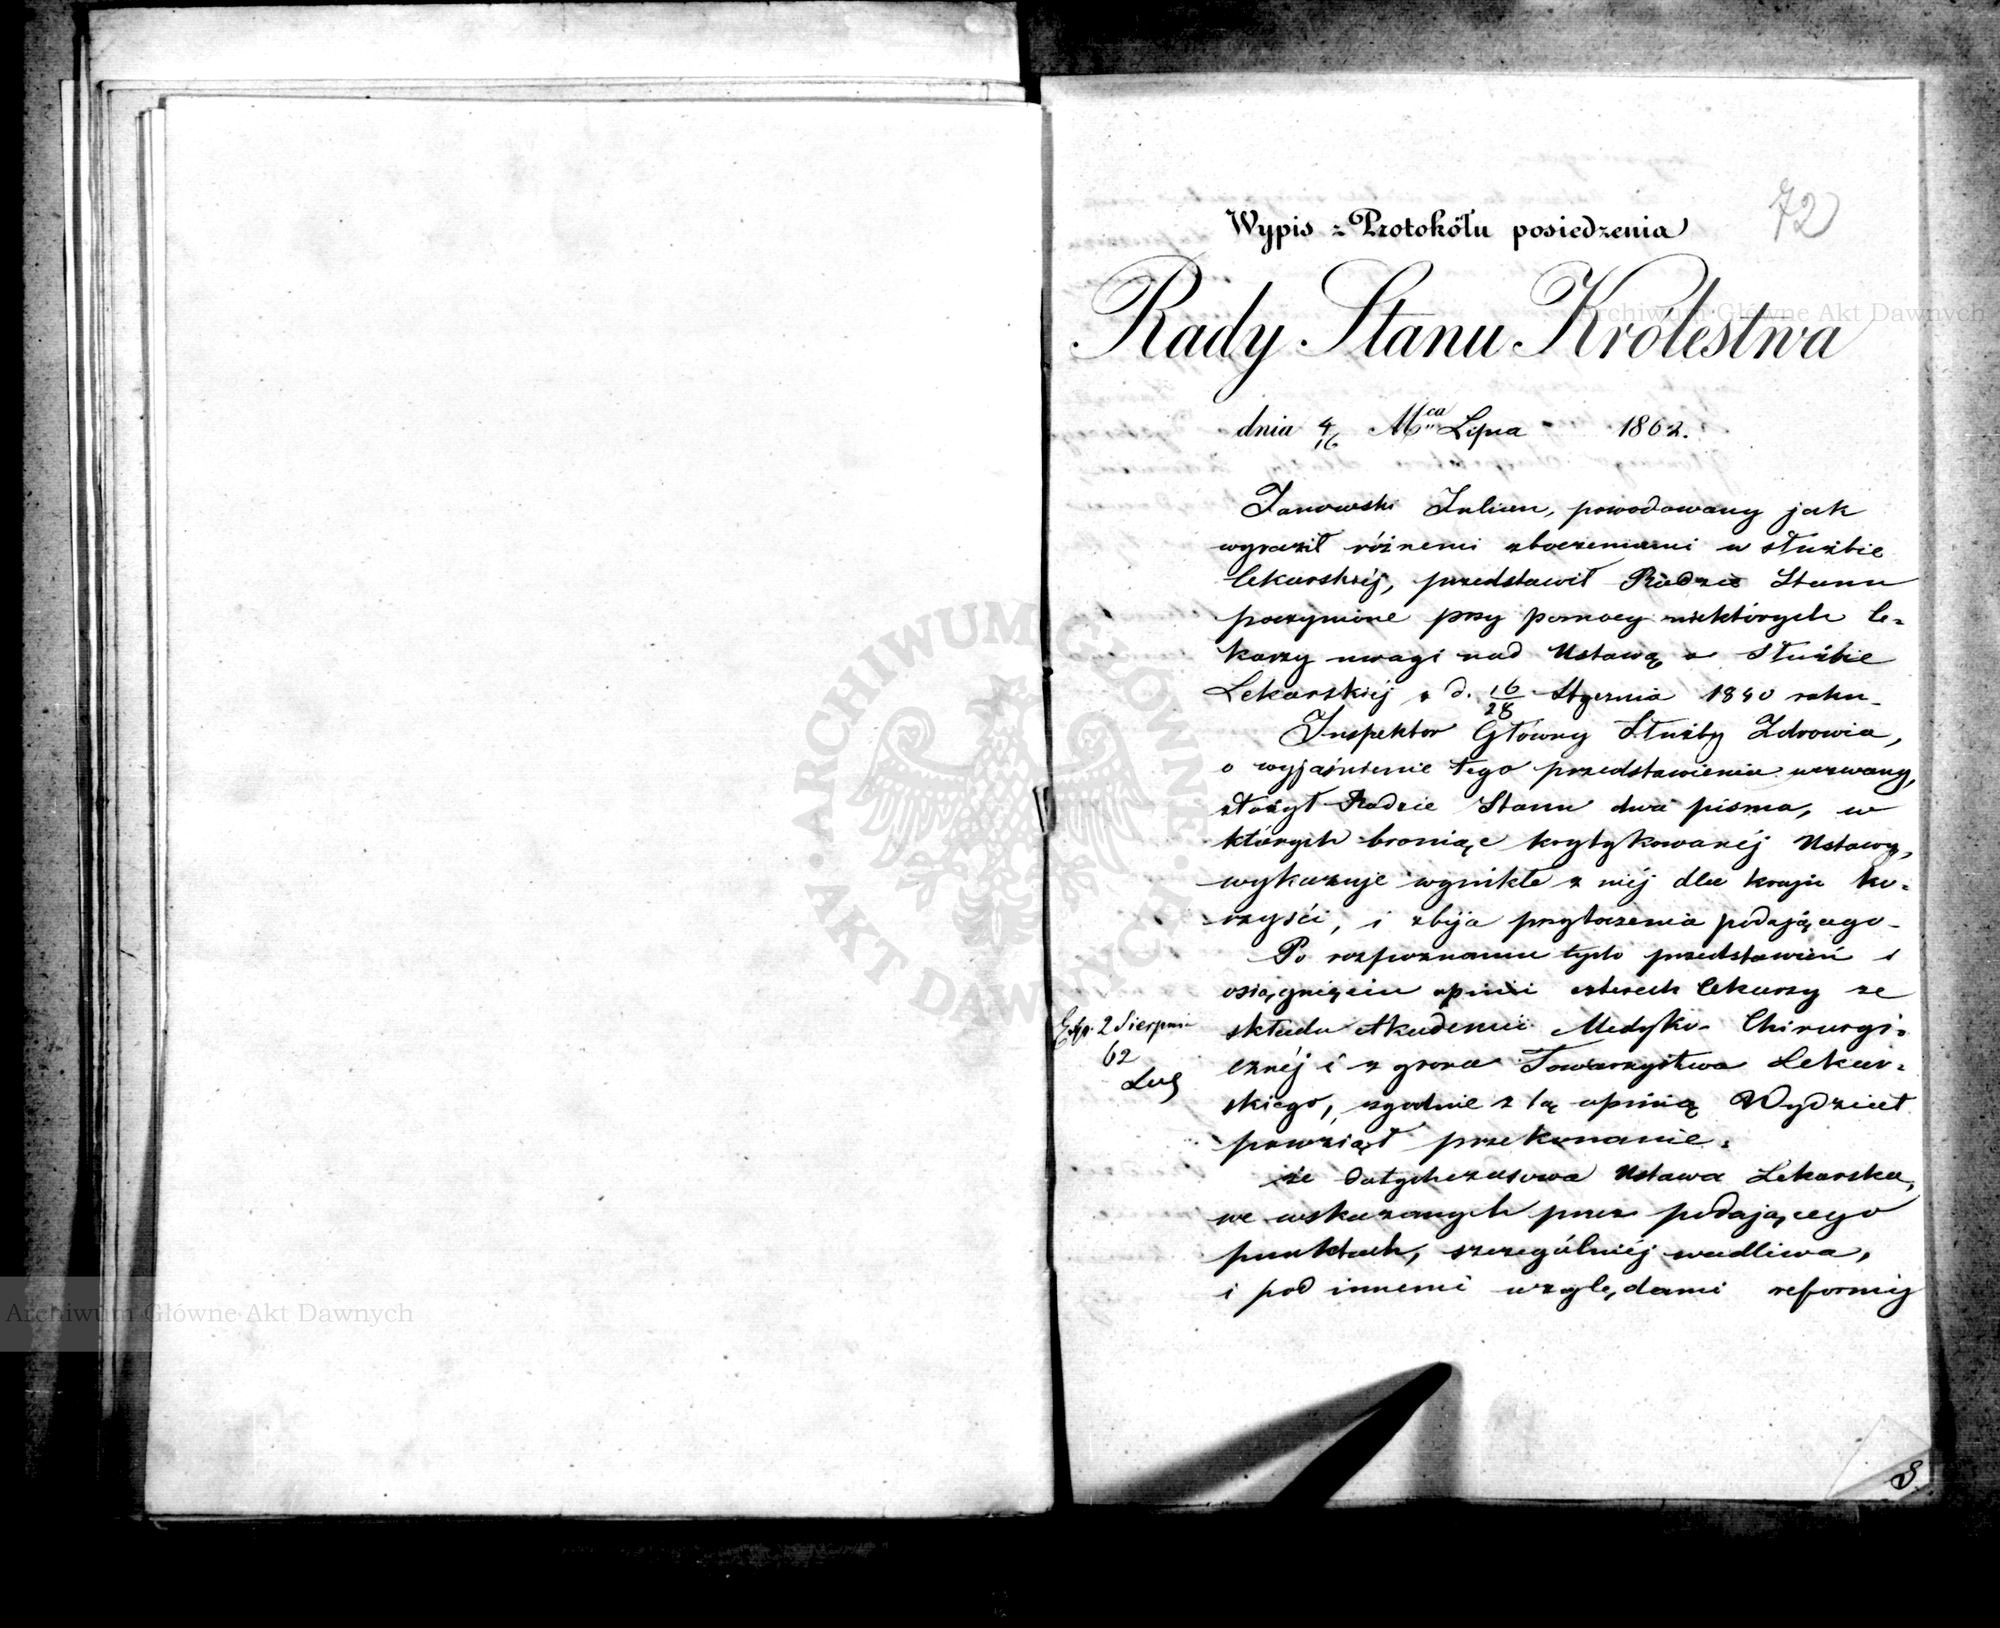 72
Wypis z Protokółu posiedzenia
Rady Stanu Królestwa
dnia 4/16 Mca Lipca 1862.
Janowski Julian, powodowany jak
wyraził różnemi zboczeniami w służbie
lekarskiéj, przedstawił Radzie Stanu
poczynione przy pomocy niektórych le-
karzy uwagi nad Ustawą o Służbie
Lekarskiéj z d. 16/28 Stycznia 1840 roku.
Inspektor Główny Służby Zdrowia,
o wyjaśnienie tego przedstawienia wezwany,
złożył Radzie Stanu dwa pisma, w
których broniąc krytykowanéj Ustawy,
wykazuje wynikłe z niéj dla kraju ko-
rzyści, i zbija przytoczenia podającego.
Po rozpoznaniu tych przedstawień i
osiągnięciu opinii czterech lekarzy ze
składu Akademii Medyko-Chirurgi-
cznéj i z grona Towarzystwa Lekar-
skiego, zgodnie z tą opinią Wydział
powziął przekonanie:
że dotychczasowa Ustawa Lekarska,
we wskazanych przez podającego
punktach, szczególniéj wadliwa,
i pod innemi względami reformy
Exp. 2 Sierpnia
62
Archiwum Główne Akt Dawnych
Archiwum Główne Akt Dawnych
ARCHIWUM GŁÓWNE • AKT DAWNYCH •